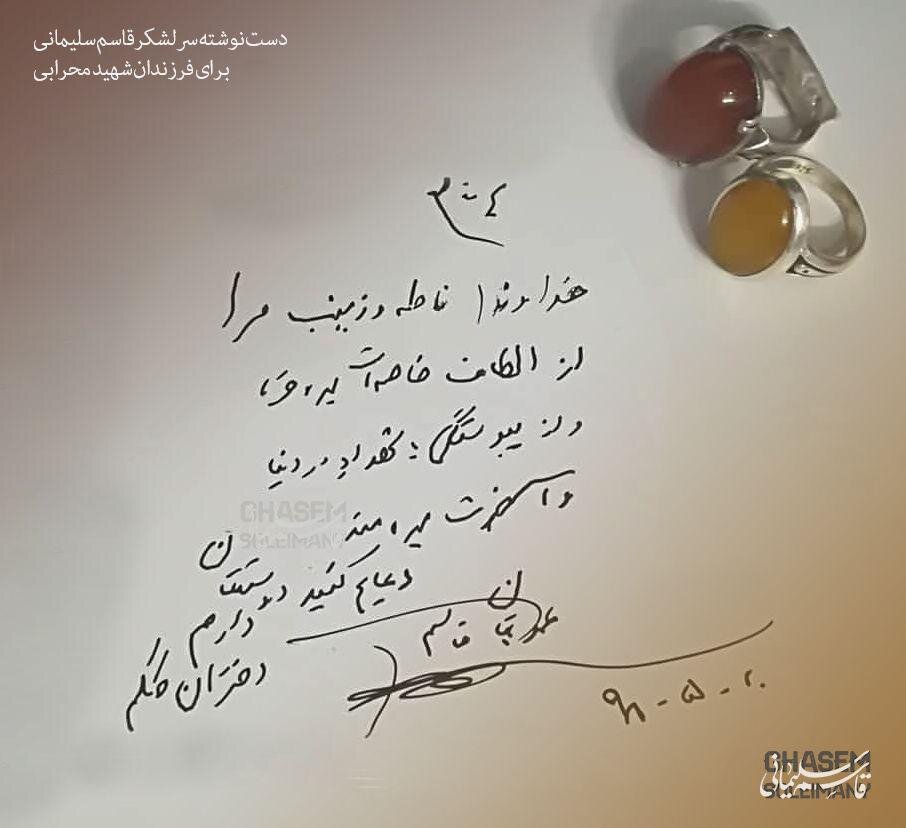 دست‌نوشته سرلشکر قاسم سلیمانی
برای فرزندان شهید محرابی
خداوندا فاطمه و زینب مرا
از الطاف خاصه‌ات
و از پیوستگی شهدا در دنیا
و آخرت بهره‌مند
دعایم کنید دوستتان
دارم
عموتان قاسم
دختران گلم
۹۸-۵-۲۰
GHASEM
SOLEIMANY
GHASEM
SOLEIMANY
قاسم سلیمانی